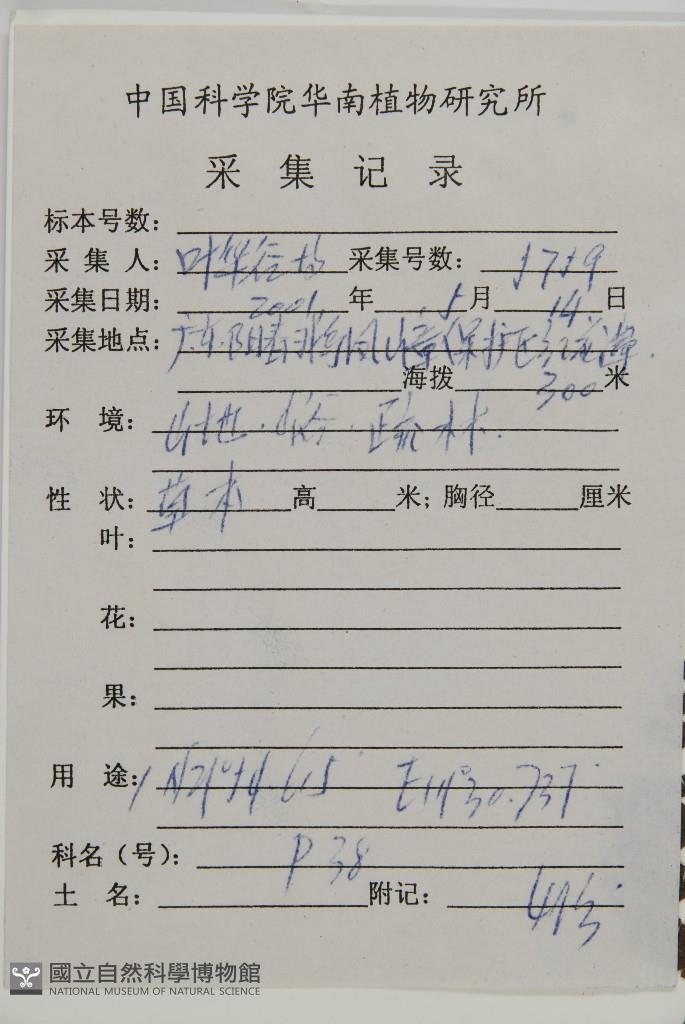 中国科学院华南植物研究所
采集记录
标本号数：
采集人：叶华谷 采集号数：
采集日期：2001 年 5 月 14 日
采集地点：广东阳春鹅凰嶂保护区
海拨 300 米
环境：山地·山谷·疏林
性状：草本 高 米；胸径 厘米
叶：
花：
果：
用途：
科名（号）：P 38
土名： 附记：
國立自然科學博物館
NATIONAL MUSEUM OF NATURAL SCIENCE